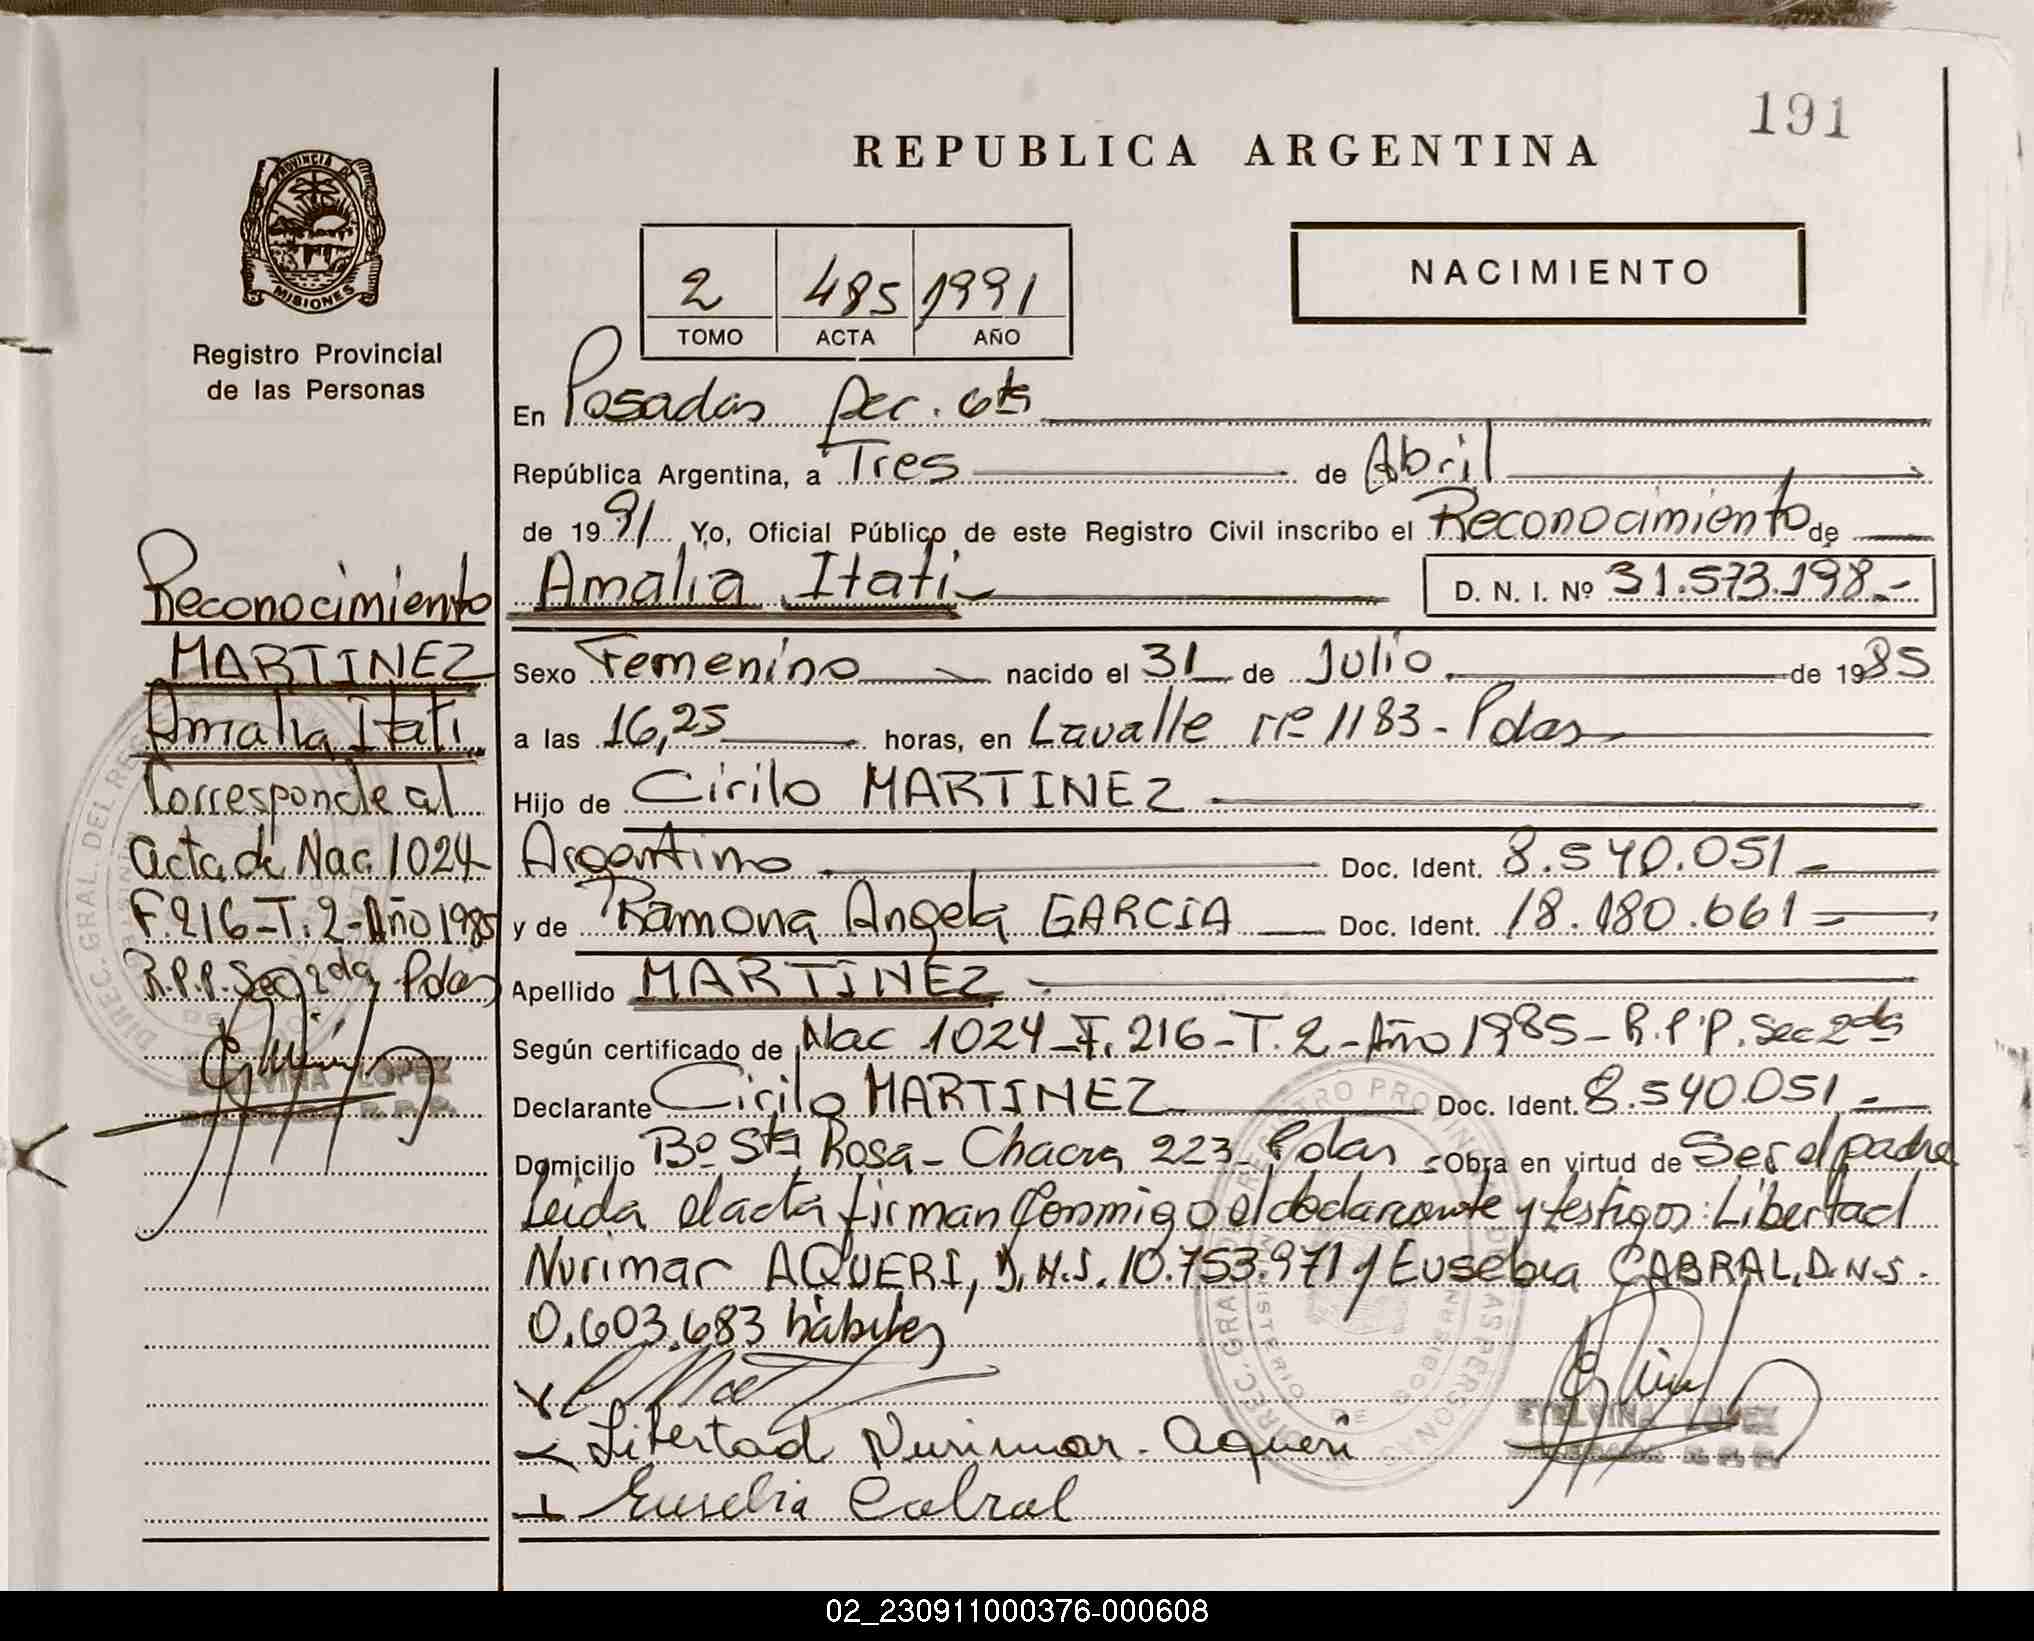 191
REPUBLICA ARGENTINA
PROVINCIA DE
MISIONES
Registro Provincial
de las Personas
NACIMIENTO
2 485 1991
TOMO ACTA AÑO
En Posadas Sec. 6ta
República Argentina, a Tres de Abril
de 1991 Yo, Oficial Público de este Registro Civil inscribo el Reconocimiento de
Amalia Itati D. N. I. Nº 31.573.198.-
Sexo Femenino nacido el 31 de Julio de 1985
a las 16,25 horas, en Lavalle nº 1183 - Pdas
Hijo de Cirilo MARTINEZ
Argentino Doc. Ident. 8.540.051
y de Ramona Angela GARCIA Doc. Ident. 18.180.661
Apellido MARTINEZ
Según certificado de Nac 1024 - F. 216 - T. 2 - Año 1985 - R.P.P. Sec 2da
Declarante Cirilo MARTINEZ Doc. Ident. 8.540.051
Domicilio Bº Sta Rosa - Chacra 223 - Pdas Obra en virtud de Ser el padre
Leida el acta firman conmigo el declarante y testigos: Libertad
Nurimar AQUERI, D.N.I. 10.753.971 y Eusebia CABRAL, D.N.I.
0.603.683 hábiles
Libertad Nurimar Aqueri
Eusebia Cabral
ETELVINA LOPEZ
DELEGADA R.P.P.
Reconocimiento
MARTINEZ
Amalia Itati
Corresponde al
acta de Nac 1024
F. 216 - T. 2 - Año 1985
R.P.P. Sec 2da Pdas
ETELVINA LOPEZ
DELEGADA R.P.P.
02_230911000376-000608